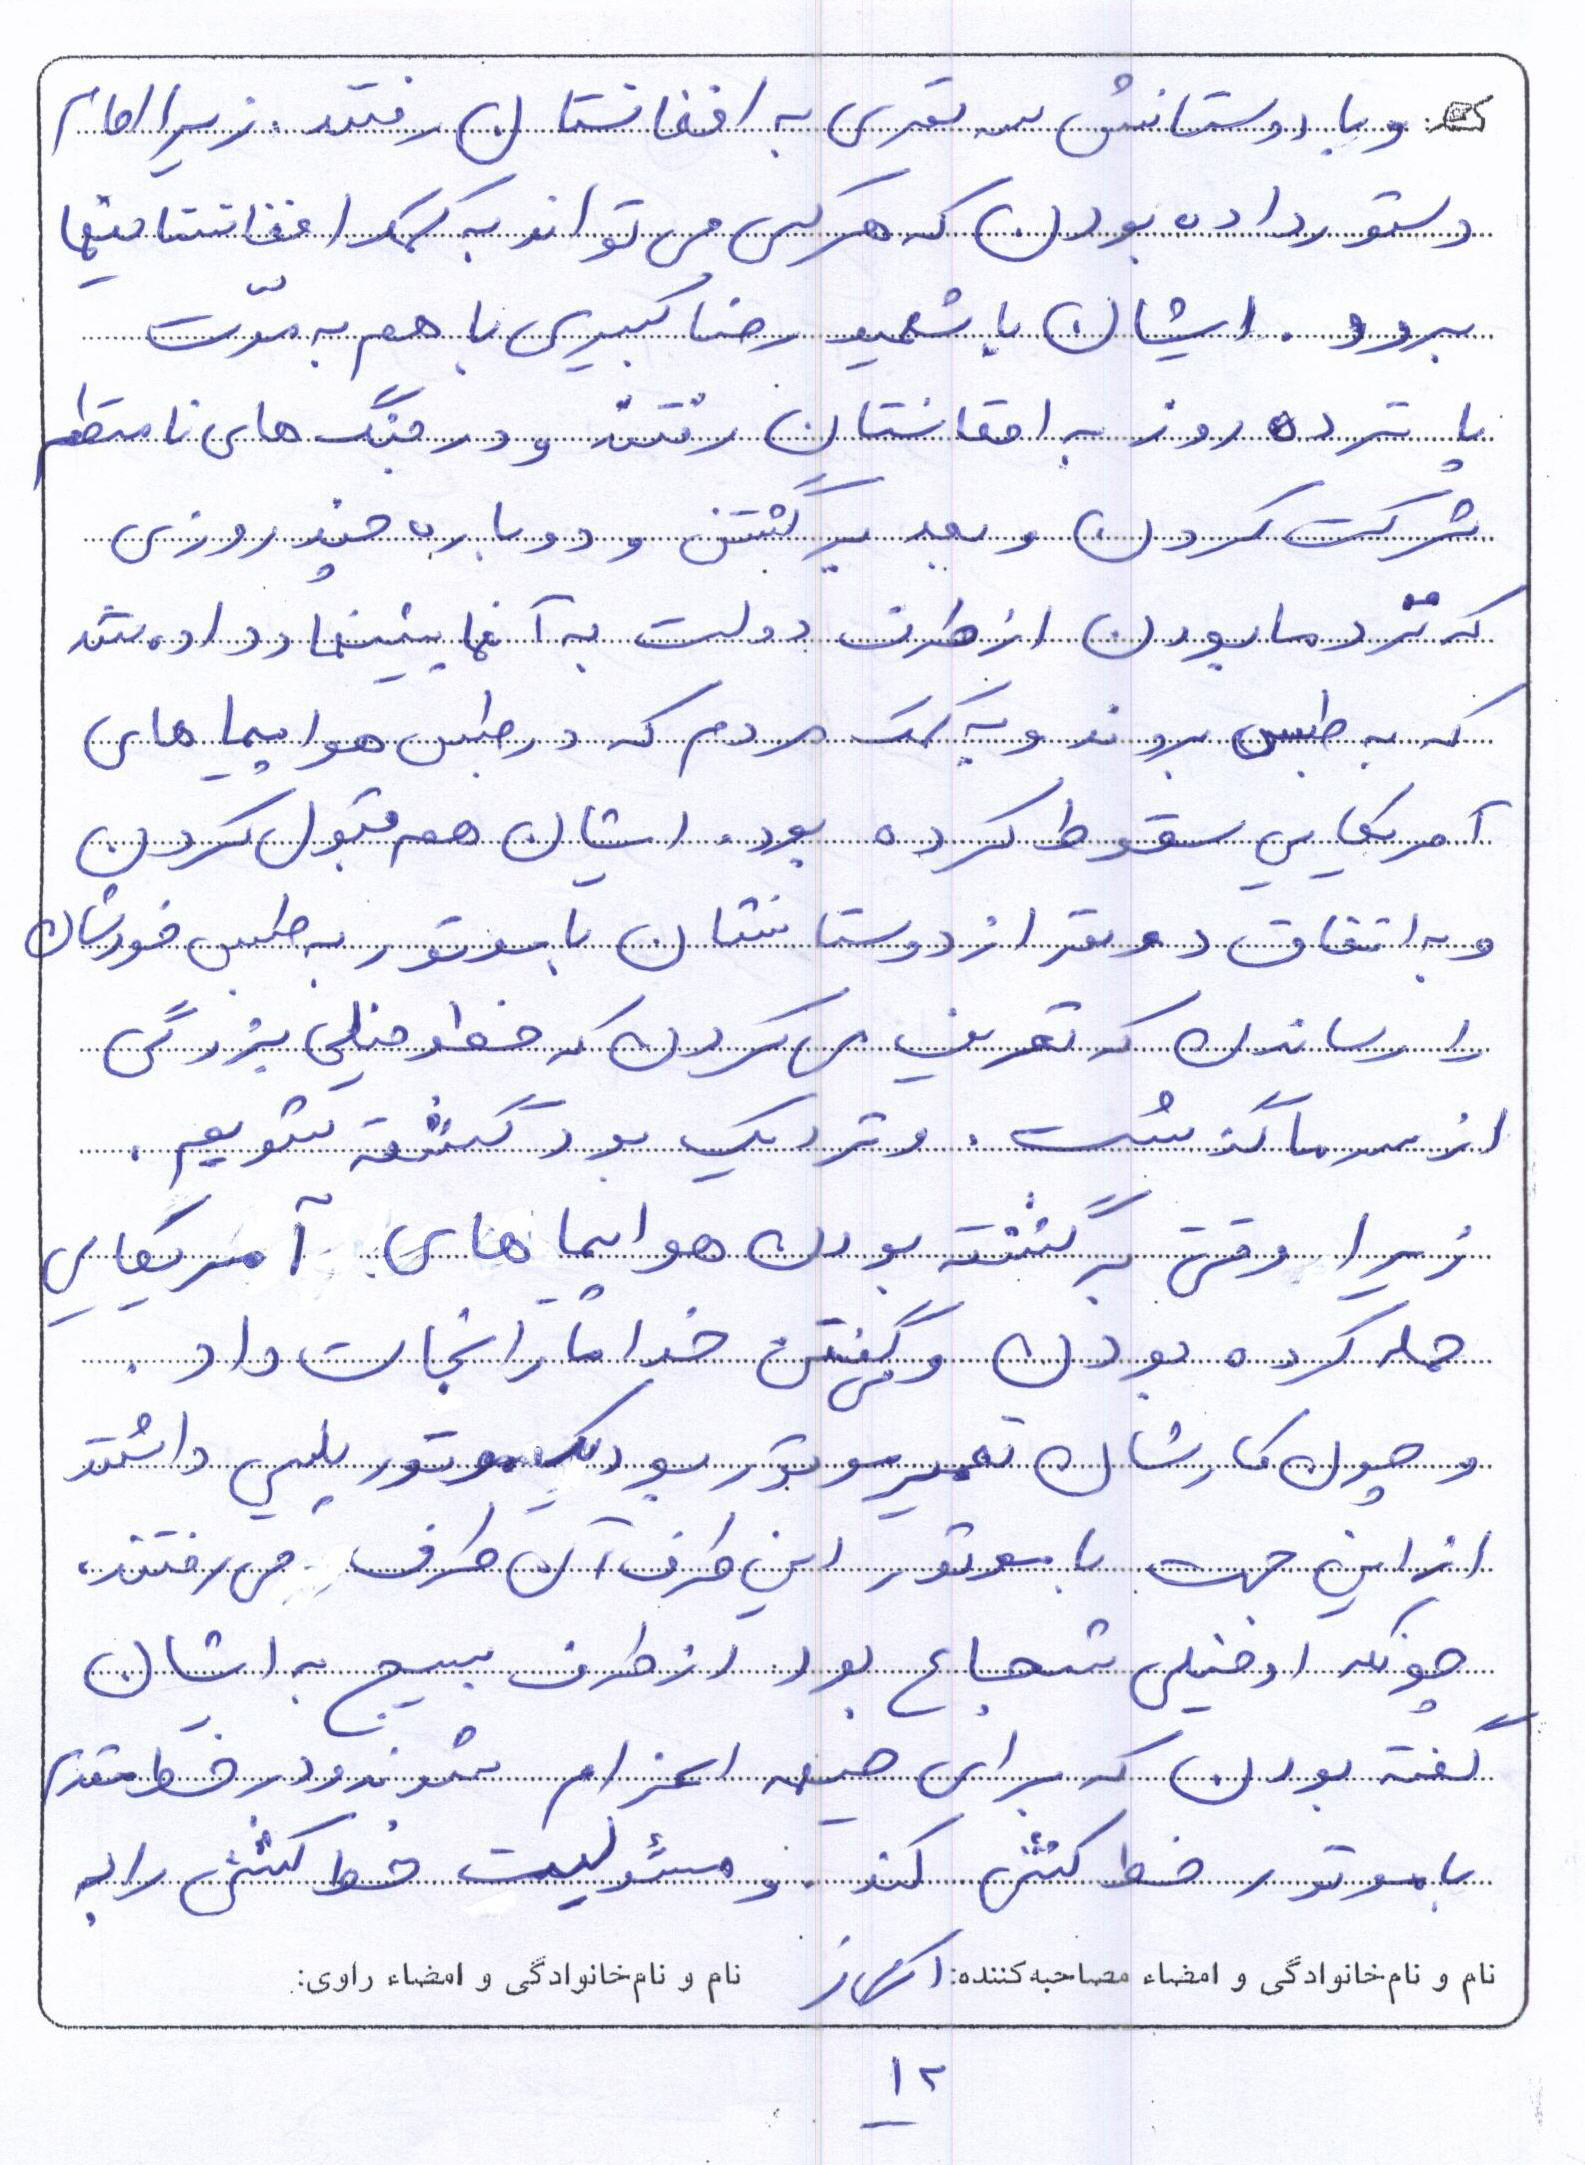 و با دوستانش سه نفری به افغانستان رفتند. زیرا امام
دستور داده بودن که هر کس می تواند به کمک افغانستانیها
برود. ایشان با شهید رضا کبیری با هم به مدّت
پانزده روز به افغانستان رفتند و در جنگ های نامنظم
شرکت کردن و بعد برگشتن و دوباره چند روزی
که نزد ما بودن از طرف دولت به آنها پیشنهاد داده شد
که به طبس بروند و به کمک مردم که در طبس هواپیماهای
آمریکایی سقوط کرده بود. ایشان هم قبول کردن
و به اتفاق دو نفر از دوستانشان با موتور به طبس خودشان
را رساندن که تعریف می کردن که خطر خیلی بزرگی
از سر ما گذشت. و نزدیک بود کشته شویم.
زیرا وقتی برگشته بودن هواپیماهای آمریکایی
حمله کرده بودن و می گفتن خدا ما را نجات داد.
و چون کارشان تعمیر موتور بود یک موتور پلیسی داشتند
از این جهت با موتور این طرف آن طرف می رفتند،
چونکه او خیلی شجاع بود از طرف بسیج به ایشان
گفته بودن که برای جبهه اعزام شوند و در خط مقدم
با موتور خط کشی کند. و مسئولیت خط کشی را به
نام و نام خانوادگی و امضاء مصاحبه کننده: نام و نام خانوادگی و امضاء راوی:
۱۲